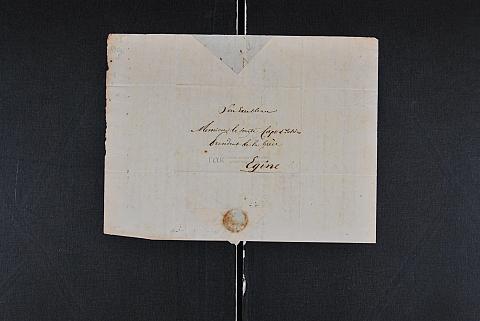 Son Excellence
Monsieur le Comte Capo d'Istria
Président de la Grèce
ΓΑΚ
Egine